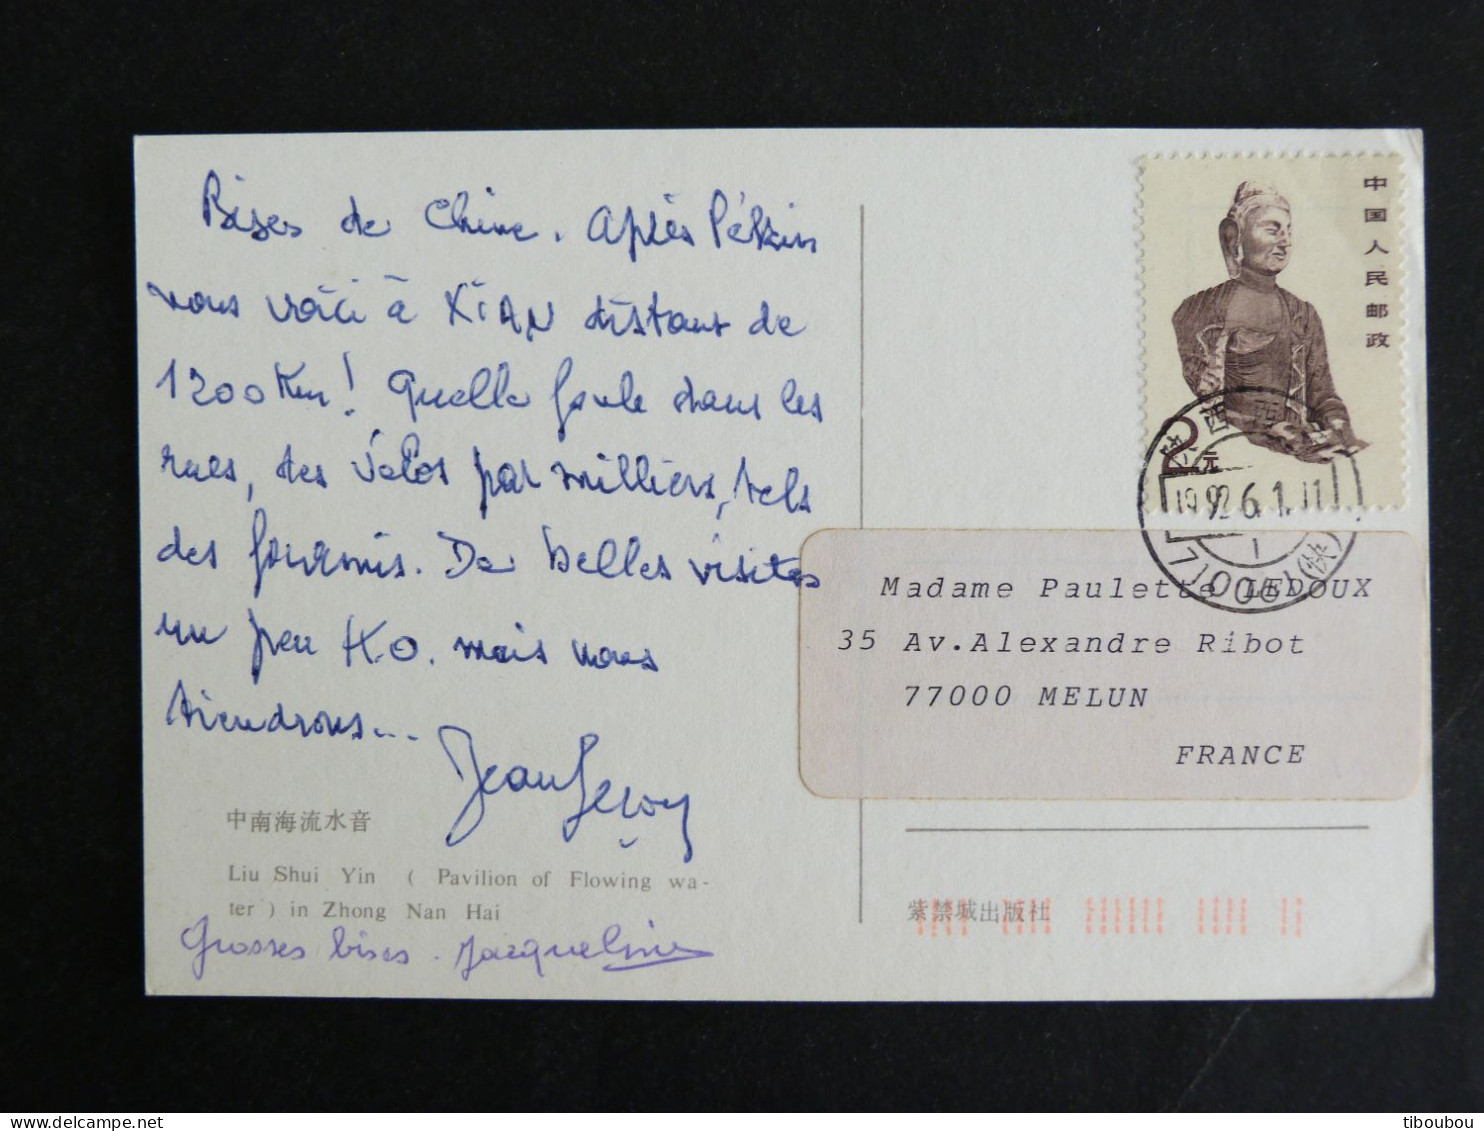 Bises de Chine. Après Pékin
nous voici à XIAN distant de
1200 Km! Quelle foule dans les
rues, des vélos par milliers, tels
des fourmis. De belles visites
un peu K.O. mais nous
tiendrons...
Jean
中南海流水音
Liu Shui Yin ( Pavilion of Flowing wa-
ter ) in Zhong Nan Hai
Grosses bises. Jacqueline
中国人民邮政
2元
西
1992.6.1.11
1
710061(快)
Madame Paulette LEDOUX
35 Av.Alexandre Ribot
77000 MELUN
FRANCE
紫禁城出版社
tiboubou